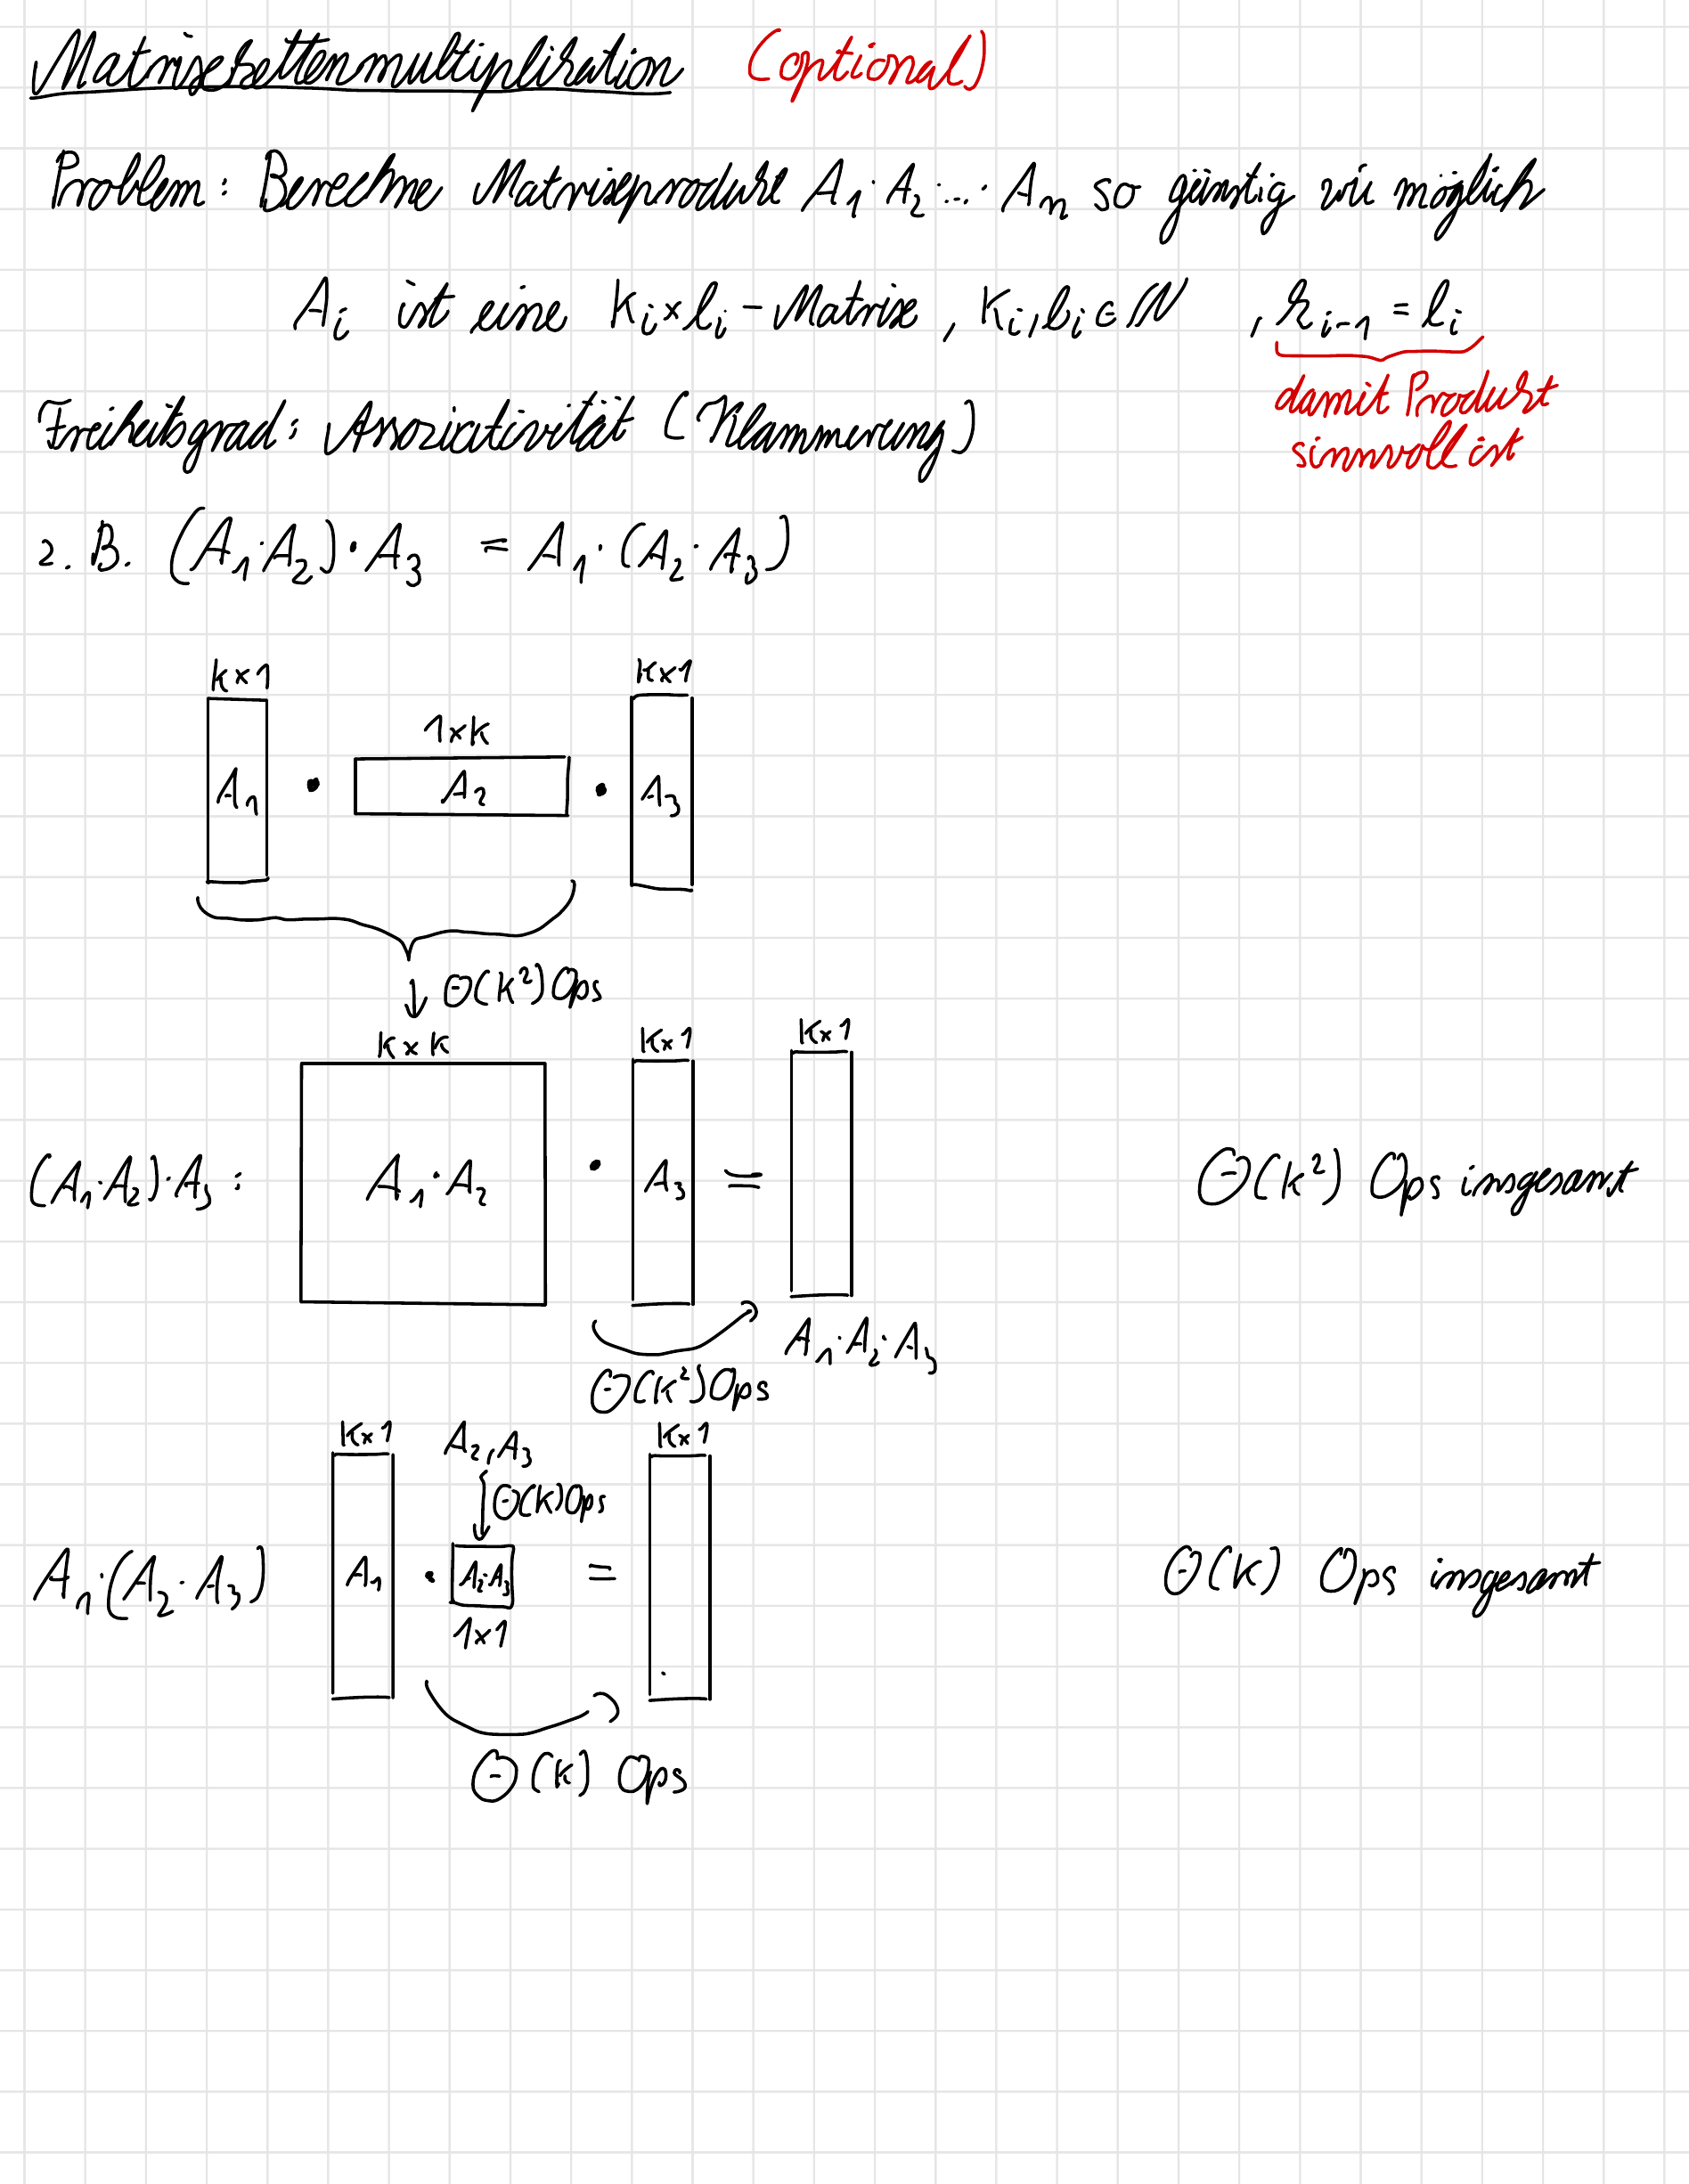 Matrixkettenmultiplikation (optional)
Problem: Berechne Matrixprodukt A₁·A₂·…·Aₙ so günstig wie möglich
Aᵢ ist eine kᵢ×lᵢ-Matrix, kᵢ,lᵢ∈ℕ, kᵢ₋₁ = lᵢ
damit Produkt
sinnvoll ist
Freiheitsgrad: Assoziativität (Klammerung)
z.B. (A₁·A₂)·A₃ = A₁·(A₂·A₃)
k×1 k×1
1×k
A₁ · A₂ · A₃
↓ Θ(k²) Ops
k×k k×1 k×1
(A₁·A₂)·A₃: A₁·A₂ · A₃ = Θ(k²) Ops insgesamt
A₁·A₂·A₃
Θ(k²) Ops
k×1 A₂,A₃ k×1
↓ Θ(k) Ops
A₁·(A₂·A₃) A₁ · A₂·A₃ = Θ(k) Ops insgesamt
1×1
Θ(k) Ops